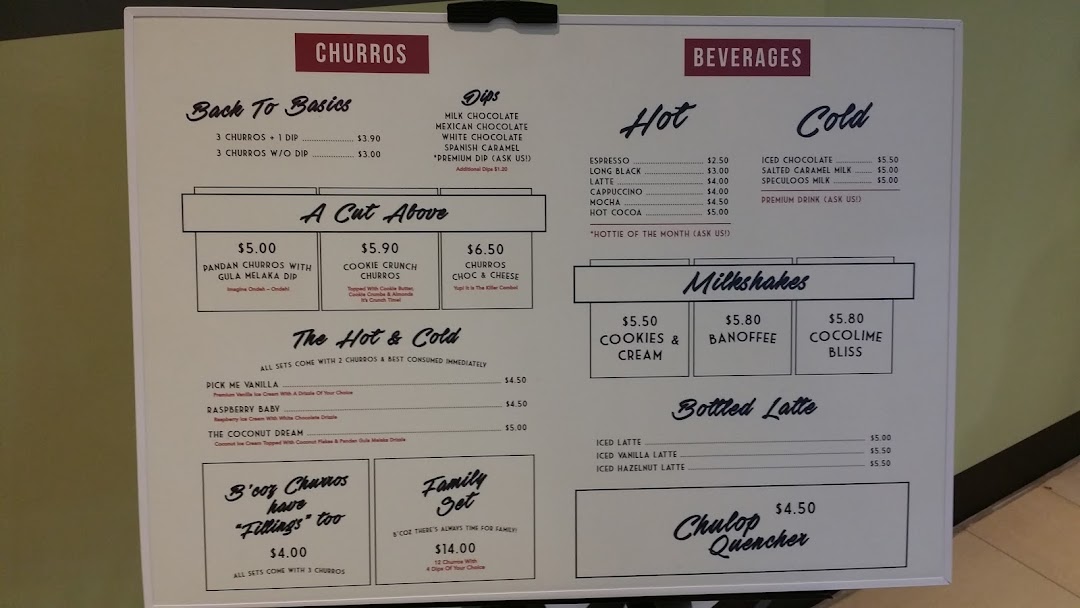 CHURROS
Back To Basics
3 CHURROS + 1 DIP ................ $3.90
3 CHURROS W/O DIP ............. $3.00
Dips
MILK CHOCOLATE
MEXICAN CHOCOLATE
WHITE CHOCOLATE
SPANISH CARAMEL
*PREMIUM DIP (ASK US!)
Additional Dips $1.20
A Cut Above
$5.00
PANDAN CHURROS WITH
GULA MELAKA DIP
Imagine Ondeh - Ondeh!
$5.90
COOKIE CRUNCH
CHURROS
Topped With Cookie Butter,
Cookie Crumbs & Almonds
It's Crunch Time!
$6.50
CHURROS
CHOC & CHEESE
Yup! It Is The Killer Combo!
The Hot & Cold
ALL SETS COME WITH 2 CHURROS & BEST CONSUMED IMMEDIATELY
PICK ME VANILLA $4.50
Premium Vanilla Ice Cream With A Drizzle Of Your Choice
RASPBERRY BABY $4.50
Raspberry Ice Cream With White Chocolate Drizzle
THE COCONUT DREAM $5.00
Coconut Ice Cream Topped With Coconut Flakes & Pandan Gula Melaka Drizzle
B'coz Churros
have
"Fillings" too
$4.00
ALL SETS COME WITH 3 CHURROS
Family
Set
B'COZ THERE'S ALWAYS TIME FOR FAMILY!
$14.00
12 Churros With
4 Dips Of Your Choice
BEVERAGES
Hot
ESPRESSO $2.50
LONG BLACK $3.00
LATTE $4.00
CAPPUCCINO $4.00
MOCHA $4.50
HOT COCOA $5.00
*HOTTIE OF THE MONTH (ASK US!)
Cold
ICED CHOCOLATE $5.50
SALTED CARAMEL MILK $5.00
SPECULOOS MILK $5.00
PREMIUM DRINK (ASK US!)
Milkshakes
$5.50
COOKIES &
CREAM
$5.80
BANOFFEE
$5.80
COCOLIME
BLISS
Bottled Latte
ICED LATTE $5.00
ICED VANILLA LATTE $5.50
ICED HAZELNUT LATTE $5.50
Chulop
Quencher
$4.50